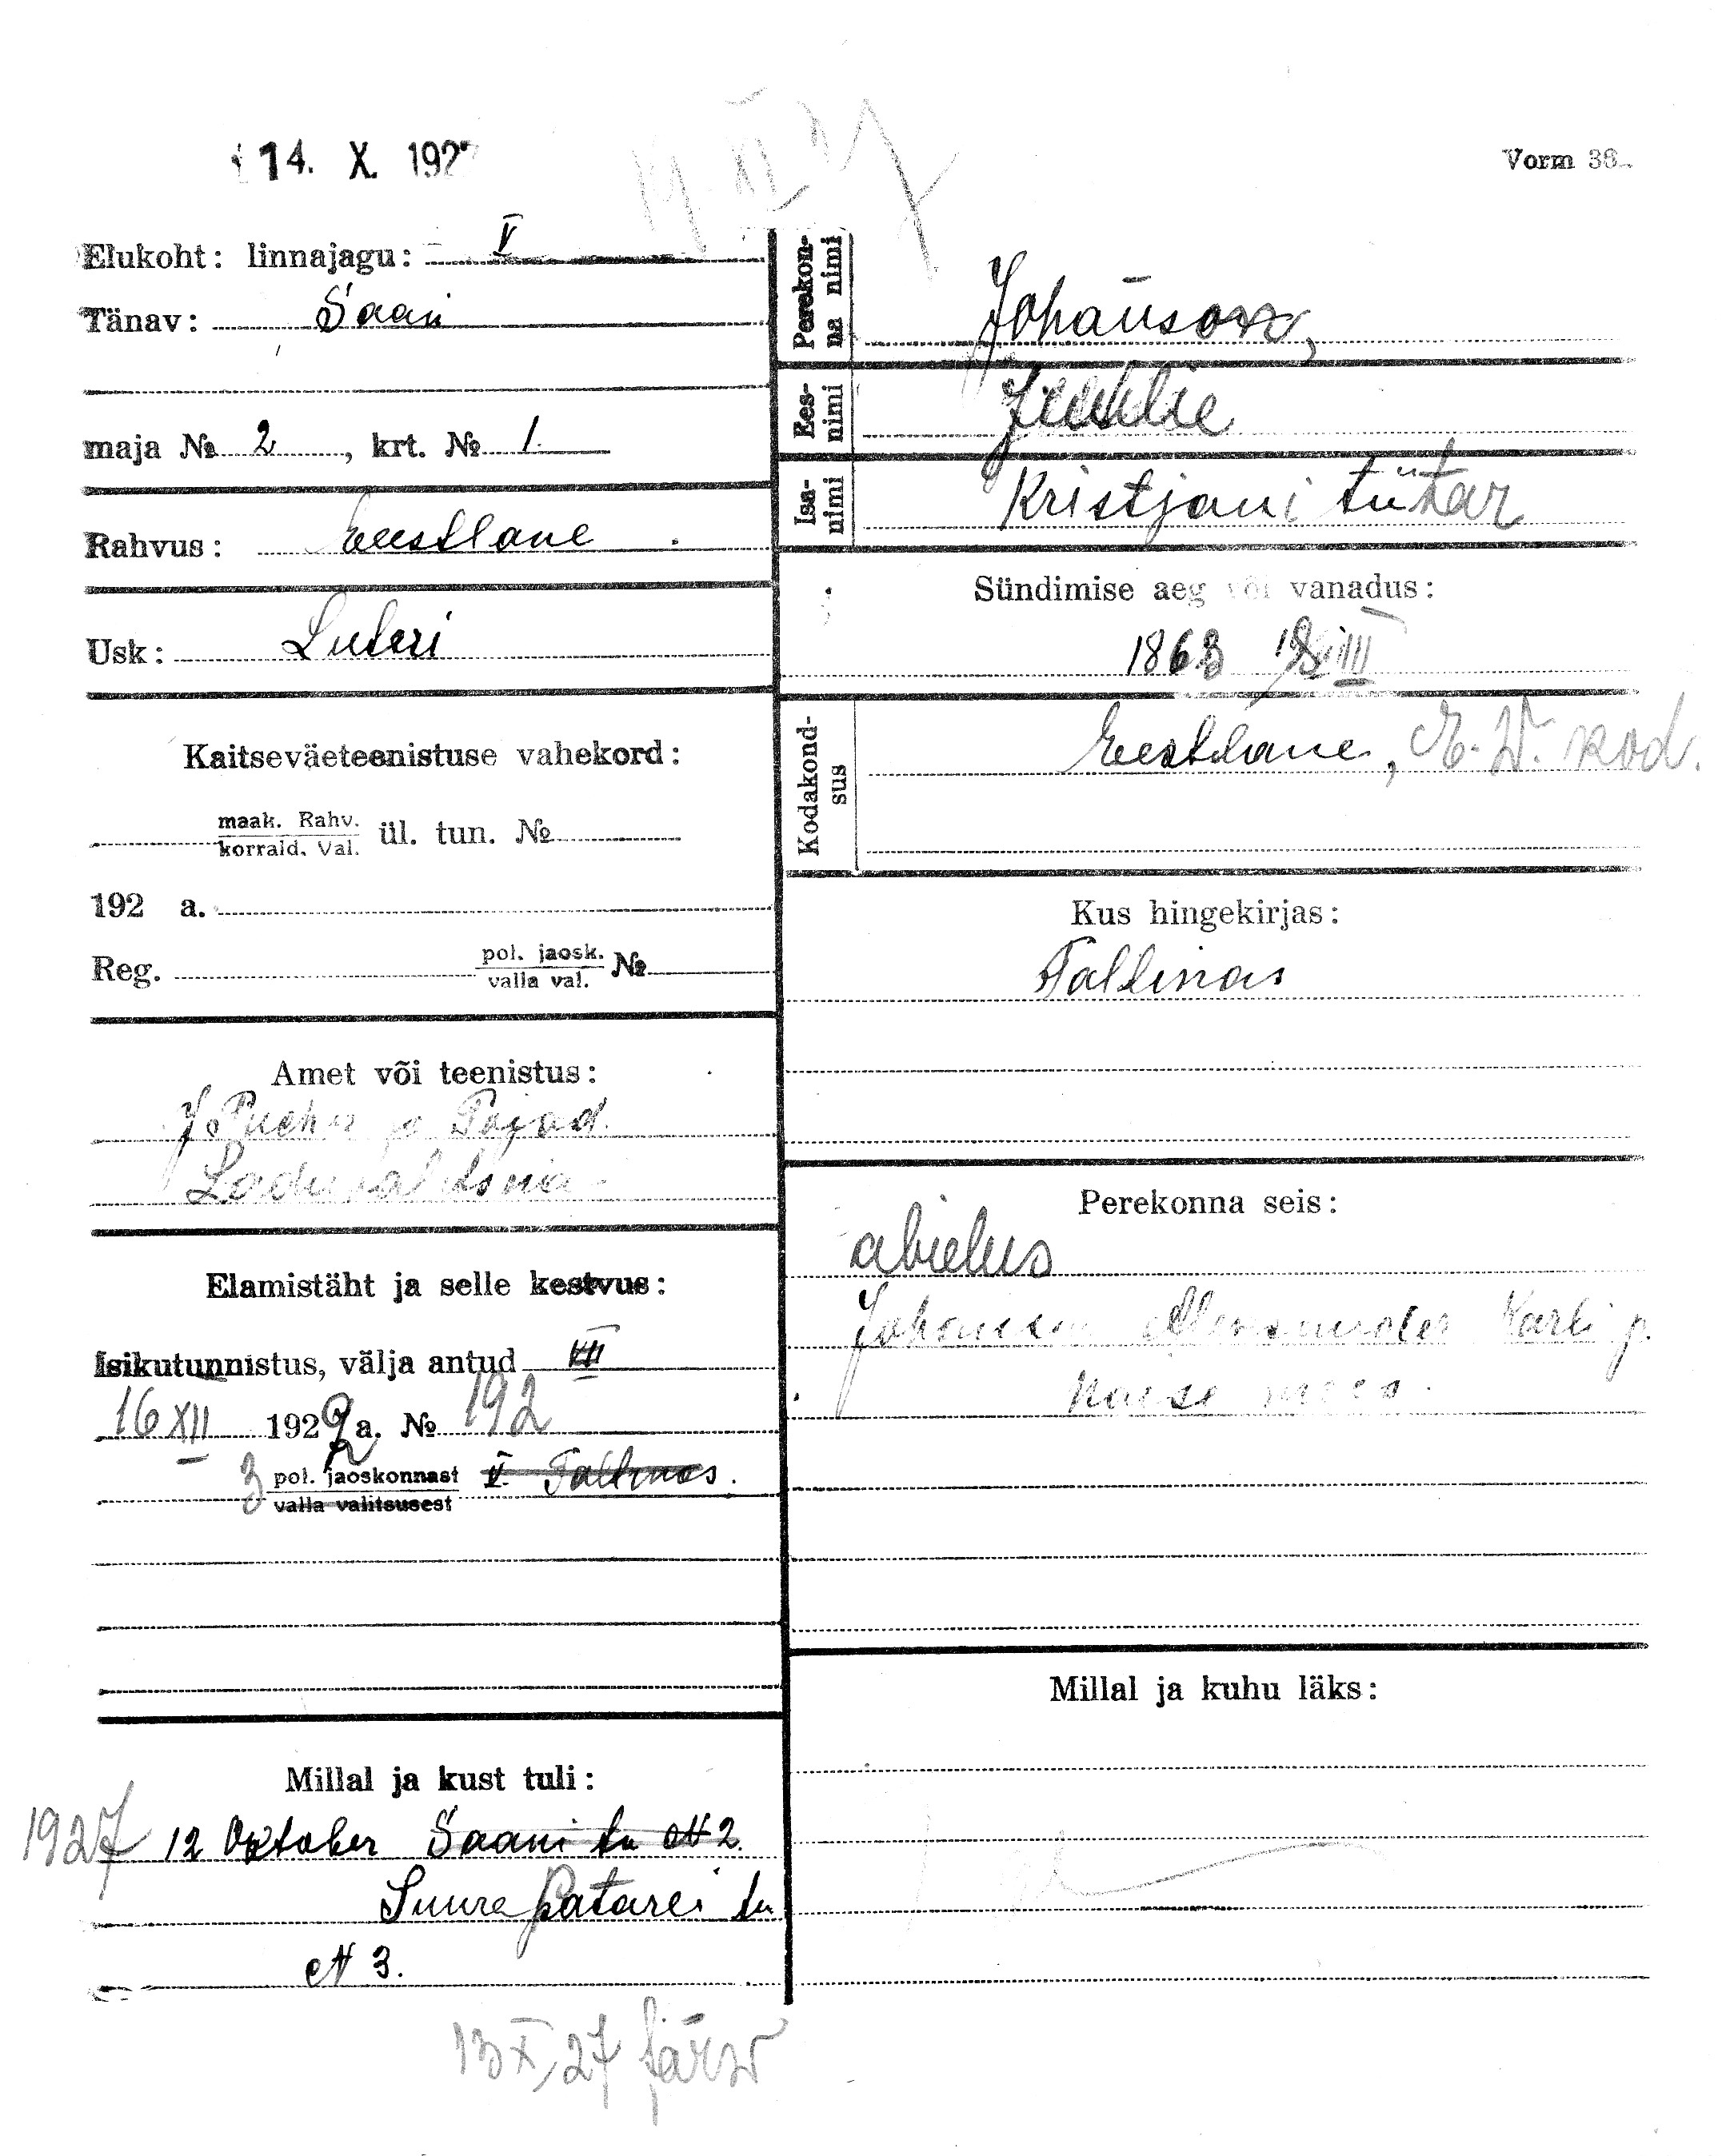 14. X. 1927
Vorm 38
Elukoht: linnajagu: V
Tänav: Saani
maja № 2, krt. № 1.
Rahvus: Eestlane
Usk: Luteri
Kaitseväeteenistuse vahekord:
maak. Rahv.
korrald. Val. ül. tun. №
192 a.
Reg. pol. jaosk. №
valla val.
Amet või teenistus:
J. Puchk ja Pojad.
Elamistäht ja selle kestvus:
Isikutunnistus, välja antud VII
16 XII 1922 a. № 192
3 pol. jaoskonnast V Tallinas.
valla valitsusest
Millal ja kust tuli:
1927 12 Oktober Saani tn N 2.
Suure Patarei tn
N 3.
13 X, 27 Järw
Perekonna nimi
Johanson,
Eesnimi
Juulie
Isanimi
Kristjani tütar
Sündimise aeg või vanadus:
1863 III
Kodakondsus
Eestlane, E. W. kod.
Kus hingekirjas:
Tallinas
Perekonna seis:
abielus
Johanson Aleksander Karli p.
naise mees.
Millal ja kuhu läks: